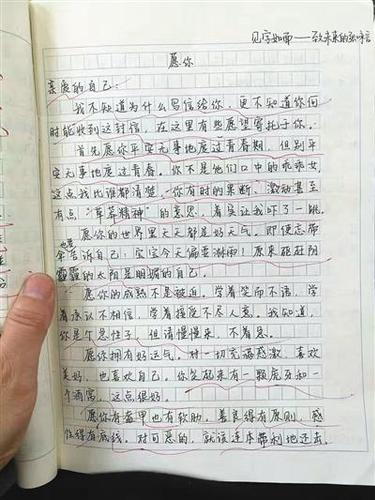 见字如面——致未来的张宇晗
愿你
亲爱的自己:
我不知道为什么写信给你,更不知道你何
时能收到这封信,在这里有些愿望寄托于你。
首先愿你平安无事地度过青春期,但别平
安无事地度过青春。你不是他们口中的乖乖女,
这点我比谁都清楚。你有时的果断、激动甚至
有点“草莽精神”的意思,着实让我吓了一跳。
愿你的世界里天天都是好天气。即便忘带
伞也要告诉自己:宝宝今天偏要淋雨!原来驱赶阴
霾的太阳是明媚的自己。
愿你的成熟不是被迫。学着笑而不语,学
着承认不相信,学着接受不尽人意。我知道,
你是个急性子,但请慢慢来,不着急。
愿你拥有好运气。对一切充满感激,喜欢
美好,也喜欢自己。你笑起来有一颗虎牙和一
个酒窝,这点很好。
愿你有盔甲也有软肋,善良得有原则,感
性得有底线。对可恶的,就该连本带利地还击。